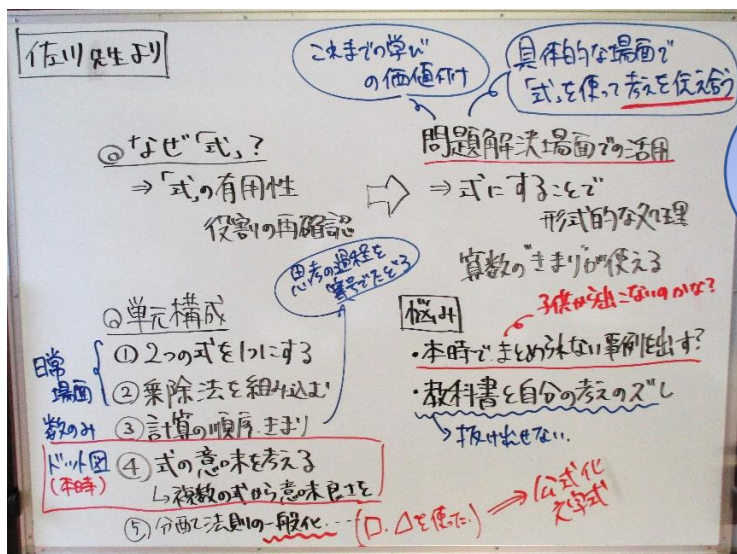 佐川先生より
これまでの学び
の価値付け
具体的な場面で
「式」を使って考えを伝え合う
◎なぜ「式」?
⇒「式」の有用性
役割の再確認
問題解決場面での活用
⇒式にすることで
形式的な処理
算数の"きまり"が使える
思考の過程を
等号でたどる
◎単元構成
日常
場面
①2つの式を1つにする
②乗除法を組み込む
数のみ
③計算の順序、きまり
ドット図
(本時)
④式の意味を考える
↳複数の式から意味良さを
⑤分配法則の一般化…(□、△を使った)
⇒公式化
文字式
悩み
子供から出てこないのかな?
・本時でまとめられない事例を出す?
・教科書と自分の考えのズレ
→抜け出せない。